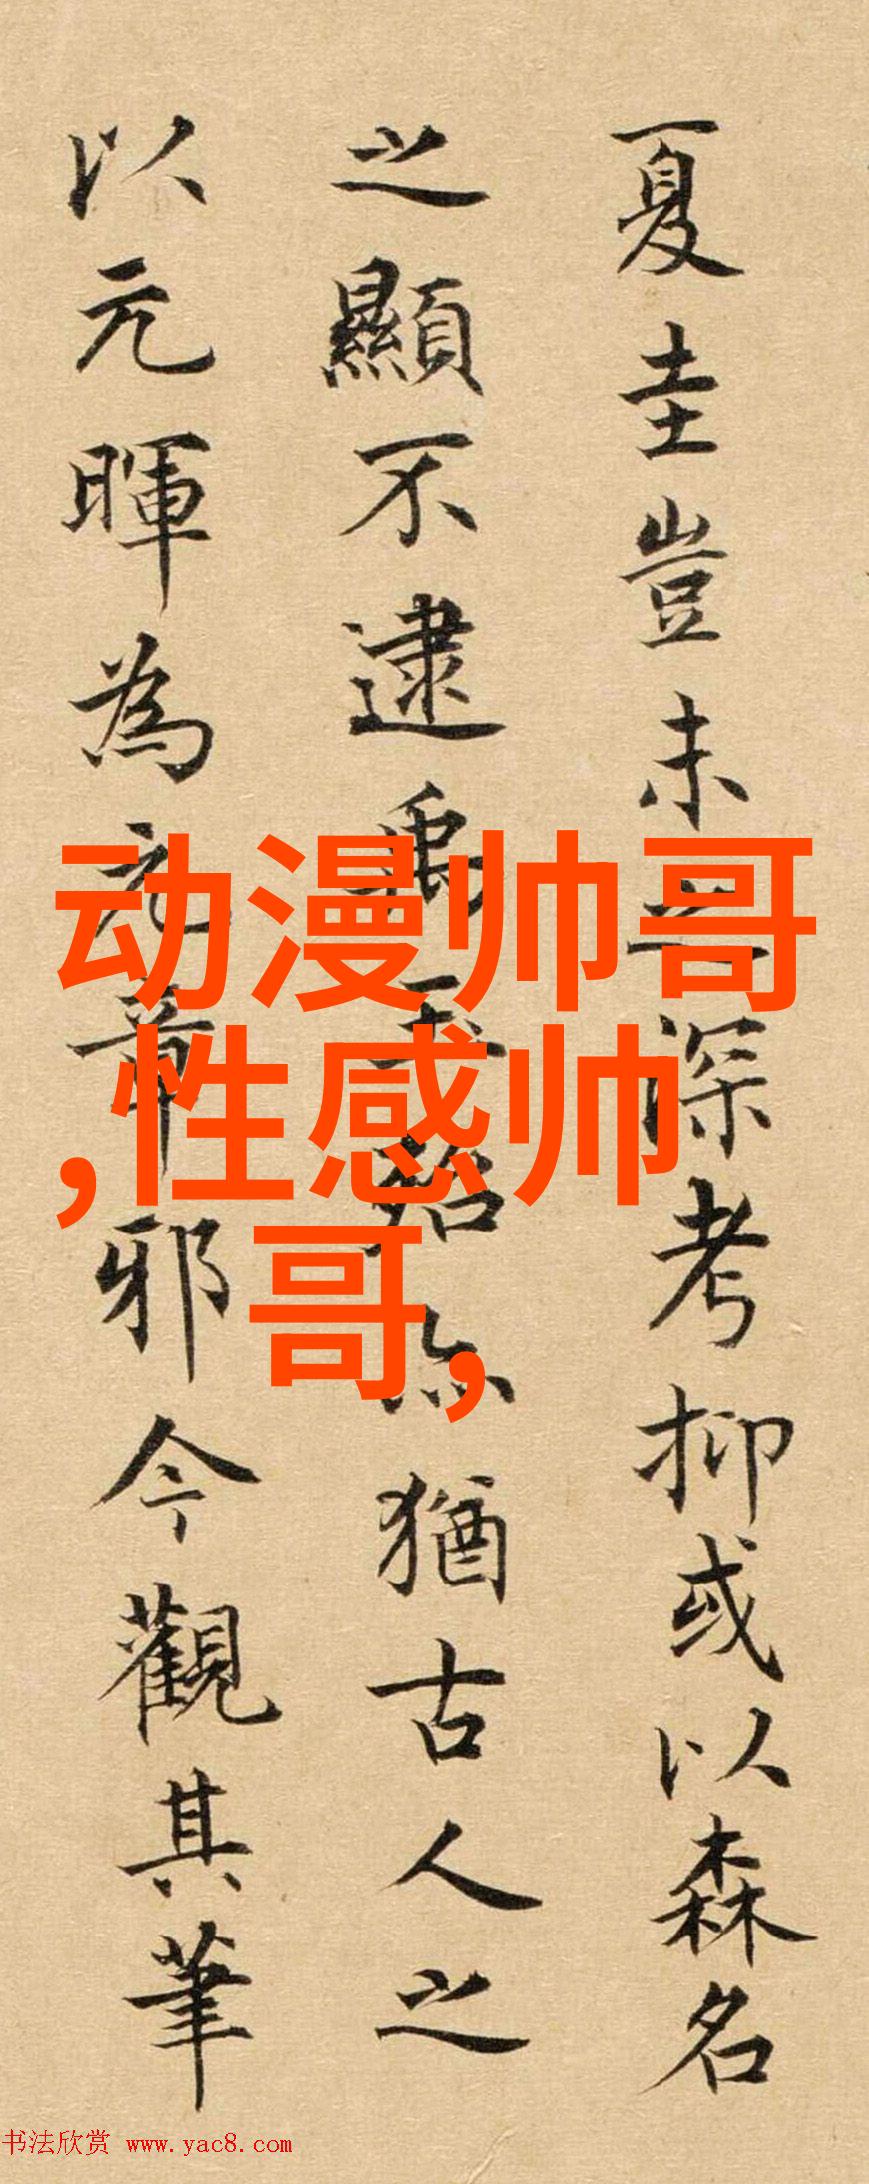 夏圭豈未之深考抑或以森名
之顯不逮禹玉殆亦猶古人之
以元暉為元章邪今觀其筆
动漫帅哥
,性感帅
哥,
书法欣赏 www.yac8.com